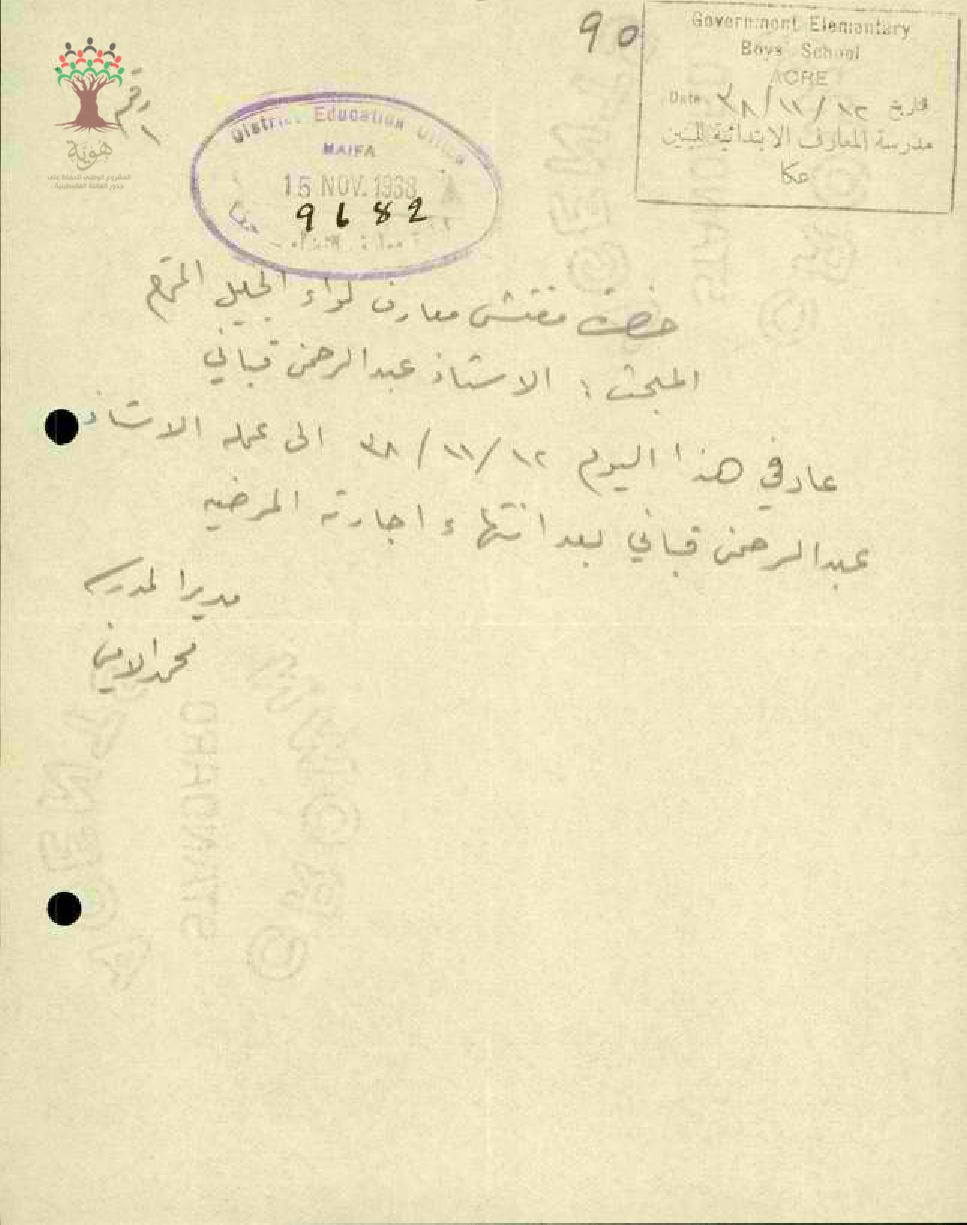 90
Government Elementary
Boys School
ACRE
Date ٣٨/١١/١٢ تاريخ
مدرسة المعارف الابتدائية للبنين
عكا
هوية
المشروع الوطني للحفاظ على
جذور العائلة الفلسطينية
رقم
١
District Education Office
HAIFA
15 NOV. 1938
9682
حضرة مفتش معارف لواء الجليل المحترم
المبحث : الاستاذ عبدالرحمن قباني
عاد في هذا اليوم ٣٨/١١/١٢ الى عمله الاستاذ
عبدالرحمن قباني بعد انتهاء اجازته المرضيه
مدير المدرسه
محمد الامين
STANDARD